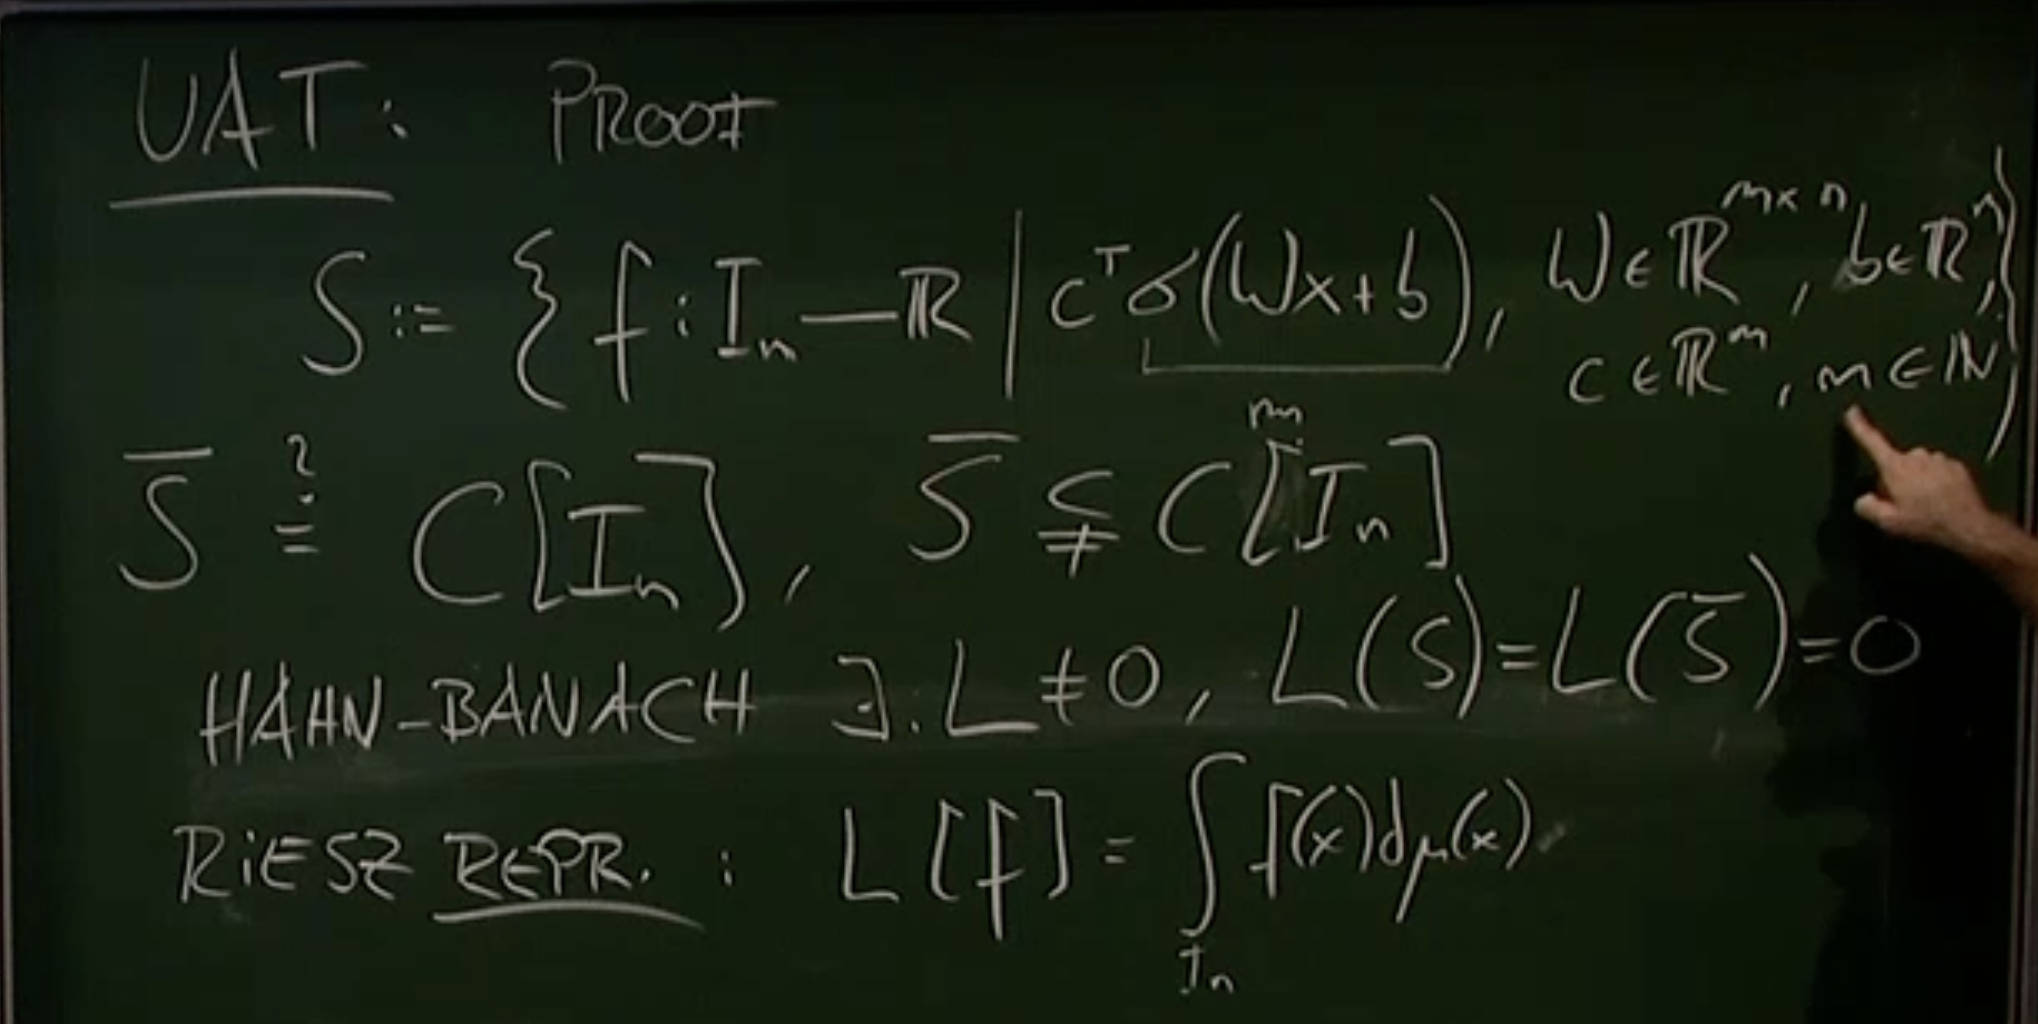 UAT: PROOF
S := { f : Iₙ — ℝ | cᵀσ(Wx+b), W ∈ ℝᵐˣⁿ, b ∈ ℝⁿ,
c ∈ ℝᵐ, m ∈ ℕ }
m
S̅ ≟ C[Iₙ], S̅ ⊊ C[Iₙ]
HAHN-BANACH ∃. L ≠ 0, L(S) = L(S̅) = 0
RIESZ REPR. : L[f] = ∫_Iₙ f(x)dμ(x)